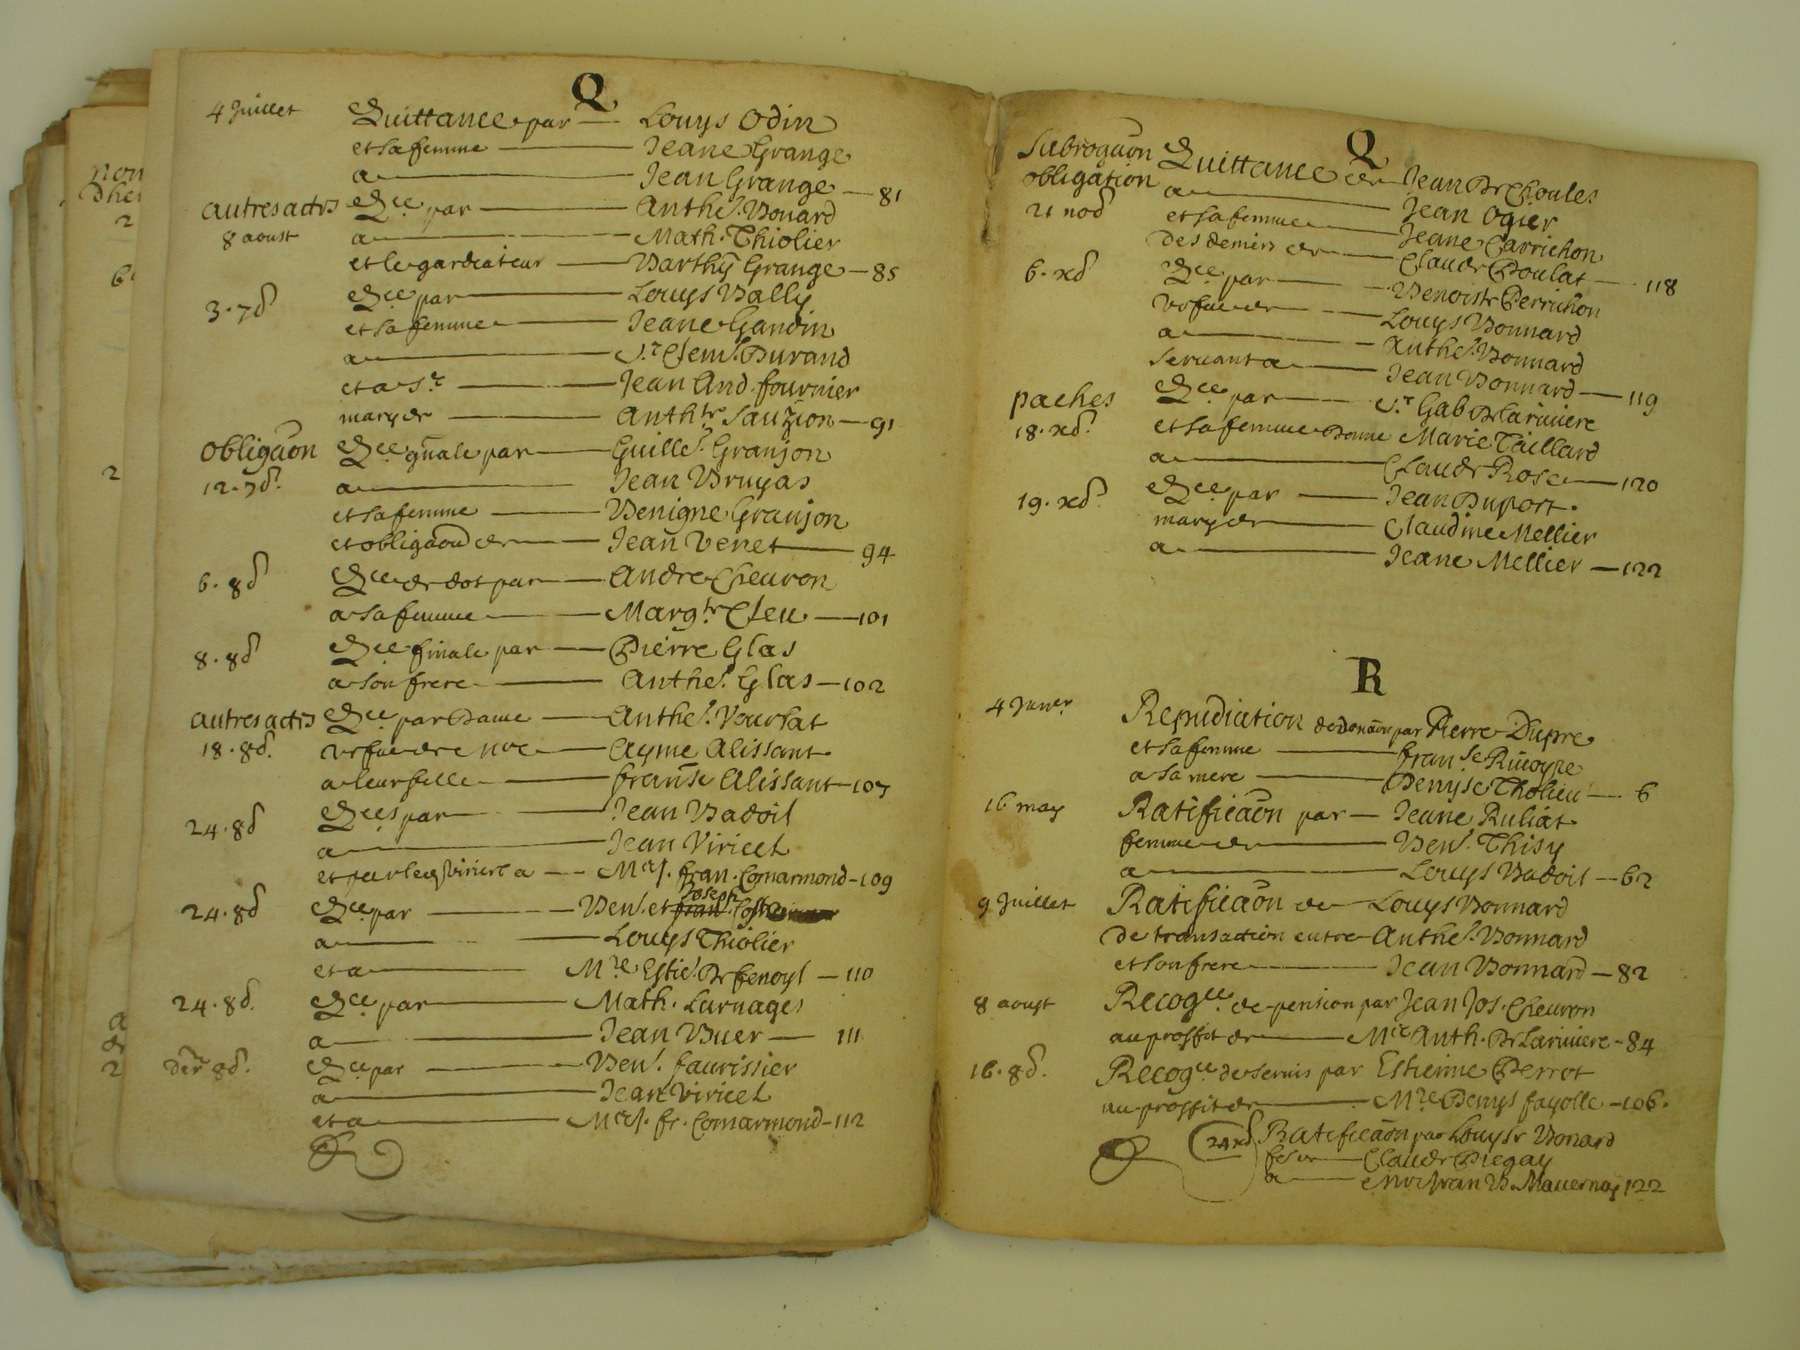 Q
4 Juillet Quittance par — Louys Odin
et sa femme — Jeane Grange
a — Jean Grange — 81
autres actes Q.ce par — Anthe. Bonard
8 aoust a — Math. Thiolier
et le gardiateur — Barthy Grange — 85
3. 7b Q.ce par — Louys Bally
et sa femme — Jeane Gandin
a — S.r Clem. Durand
et a S.r — Jean And. fournier
mary de — Anth.te Sauzion — 91
obligaon Q.ce gnale par — Guille. Granjon
12. 7b. a — Jean Bruyas
et sa femme — Benigne Granjon
et obligaon de — Jean Venet — 94
6. 8b Q.ce de dot par — Andre Cheuron
a sa femme — Marg.te Cleu — 101
8. 8b Q.ce finale par — Pierre Glas
a son frere — Anthe. Glas — 102
autres actes Q.ce par Dame — Anthe. Voursat
18. 8b. vefue de me — Ayme Alissant
a leur fille — franse Alissant — 107
24. 8b Q.ces par — Jean Badoil
a — Jean Viricel
et par led. viricel a — M.e J. fran. Comarmond — 109
24. 8b Q.ce par — Ben. et fran. Joseph Coste
a — Louys Thiolier
et a — M.re Estie. De fenoyl — 110
24. 8b. Q.ce par — Math. Lurnages
a — Jean Buer — 111
der 8b. Q.ce par — Ben. faurissier
a — Jean Viricel
et a — M.e J. fr. Comarmond — 112
Q
Subrogaon Quittance de Jean De Choules
obligation a — Jean Ogier
21 nob et sa femme — Jeane Carrichon
des deniers de — Claude Poulat — 118
6. xb Q.ce par — Benoiste Perrichon
vefue de — Louys Bonnard
a — Anthe. Bonnard
seruant a — Jean Bonnard — 119
paches Q.ce par — S.r Gab De Lariuiere
18. xb. et sa femme Dame Marie Taillard
a — Claude Rose — 120
19. xb. Q.ce par — Jean Duport.
mary de — Claudine Mellier
a — Jeane Mellier — 122
R
4 Janer Repudiation de donaon par Pierre Dupre
et sa femme — fran.se Riuoyre
a sa mere — Denyse Tholieu — 6
16 may Ratificaon par — Jeane Ruliat
femme de — Ben. Thisy
a — Louys Badoil — 62
9 Juillet Ratificaon de — Louys Bonnard
de transaction entre Anthe. Bonnard
et son frere — Jean Bonnard — 82
8 aoust Recog.ce de pension par Jean Jos. Cheuron
au proffit de — M.re Anth. De Lariuiere — 84
16. 8b. Recog.ce de seruis par Estienne Perrot
au proffit de — M.re Denys fayolle — 106.
24 xb Ratificaon par Louyse Bonard
fe de — Claude Piegay
a — Me Jean B. Mauernay 122